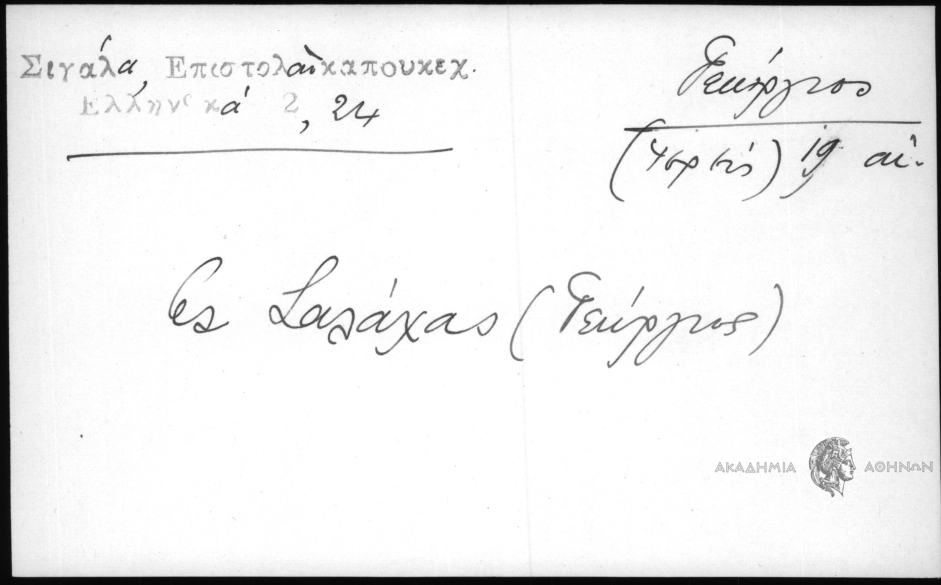 Σιγάλα, Επιστολαὶ καπουκεχ.
Ελληνικά 2, 24
Γεώργιος
19 αἰ.
Σαλάχας (Γεώργιος)
ΑΚΑΔΗΜΙΑ ΑΘΗΝΩΝ